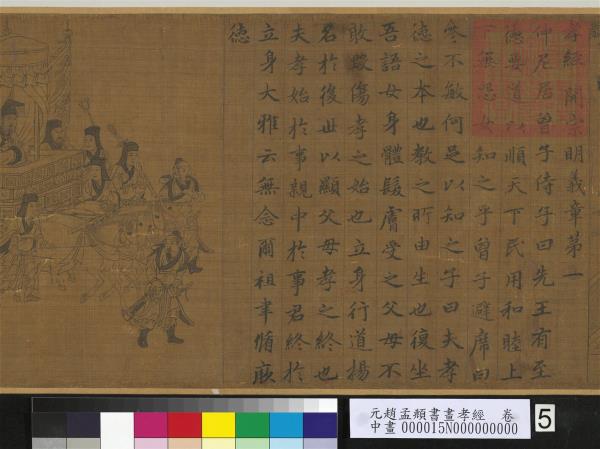 孝經開宗明義章第一
仲尼居曾子侍子曰先王有至
德要道以順天下民用和睦上
下無怨女知之乎曾子避席曰
參不敏何足以知之子曰夫孝
德之本也教之所由生也復坐
吾語女身體髮膚受之父母不
敢毀傷孝之始也立身行道揚
名於後世以顯父母孝之終也
夫孝始於事親中於事君終於
立身大雅云無念爾祖聿脩厥
德
元趙孟頫書畫孝經 卷
中畫 000015N000000000
5